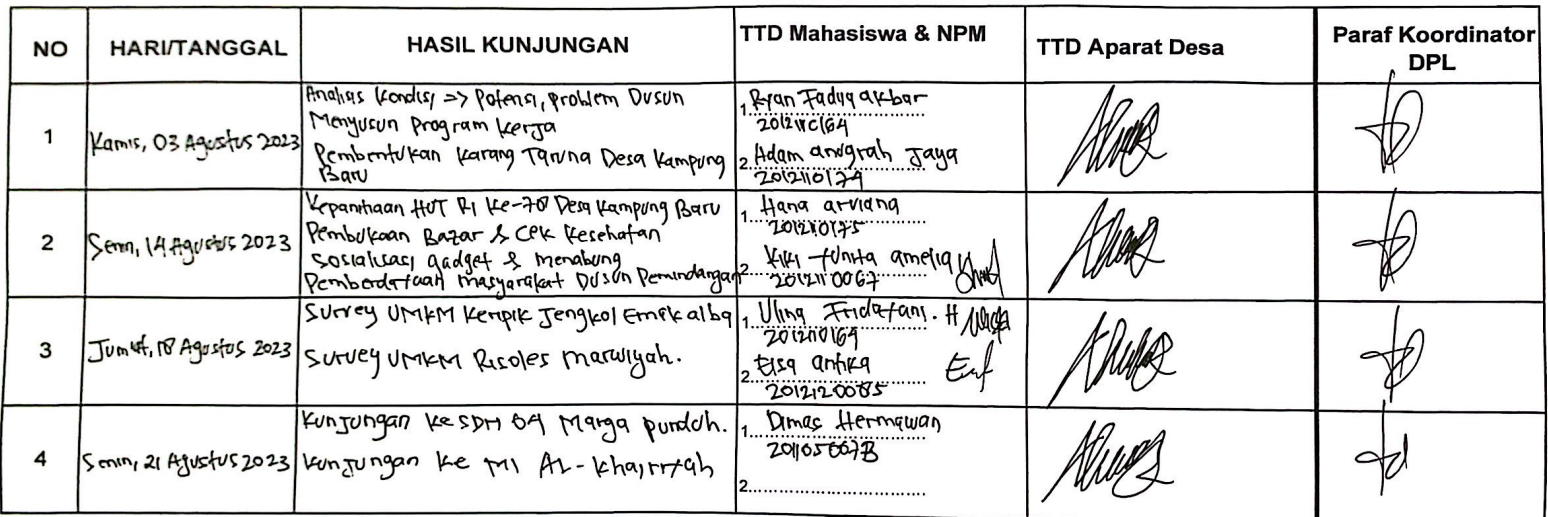 NO HARI/TANGGAL HASIL KUNJUNGAN TTD Mahasiswa & NPM TTD Aparat Desa Paraf Koordinator DPL
1
Kamis, 03 Agustus 2023
Analisis Kondisi => Potensi, problem Dusun
Menyusun Program Kerja
Pembentukan Karang Taruna Desa Kampung
Baru
1. Ryan Fadya akbar
2. Adam anugrah Jaya
2
Senin, 14 Agustus 2023
Kepanitiaan HUT RI Ke-78 Desa Kampung Baru
Pembukaan Bazar & Cek Kesehatan
Sosialisasi gadget & menabung
Pemberdayaan masyarakat Dusun Pemindangan
1. Hana arviana
2012110175
2. Kiki Yunita amelia
2012110067
3
Jumat, 18 Agustus 2023
Survey UMKM Keripik Jengkol Emak alba
Survey UMKM Risoles Marwiyah.
1. Ulina Fridayani. H
2. Elsa antika
2012120085
4
Senin, 21 Agustus 2023
Kunjungan ke SDN 04 Marga punduh.
Kunjungan ke MI AL-Khairiyah
1. Dimas Hermawan
2.